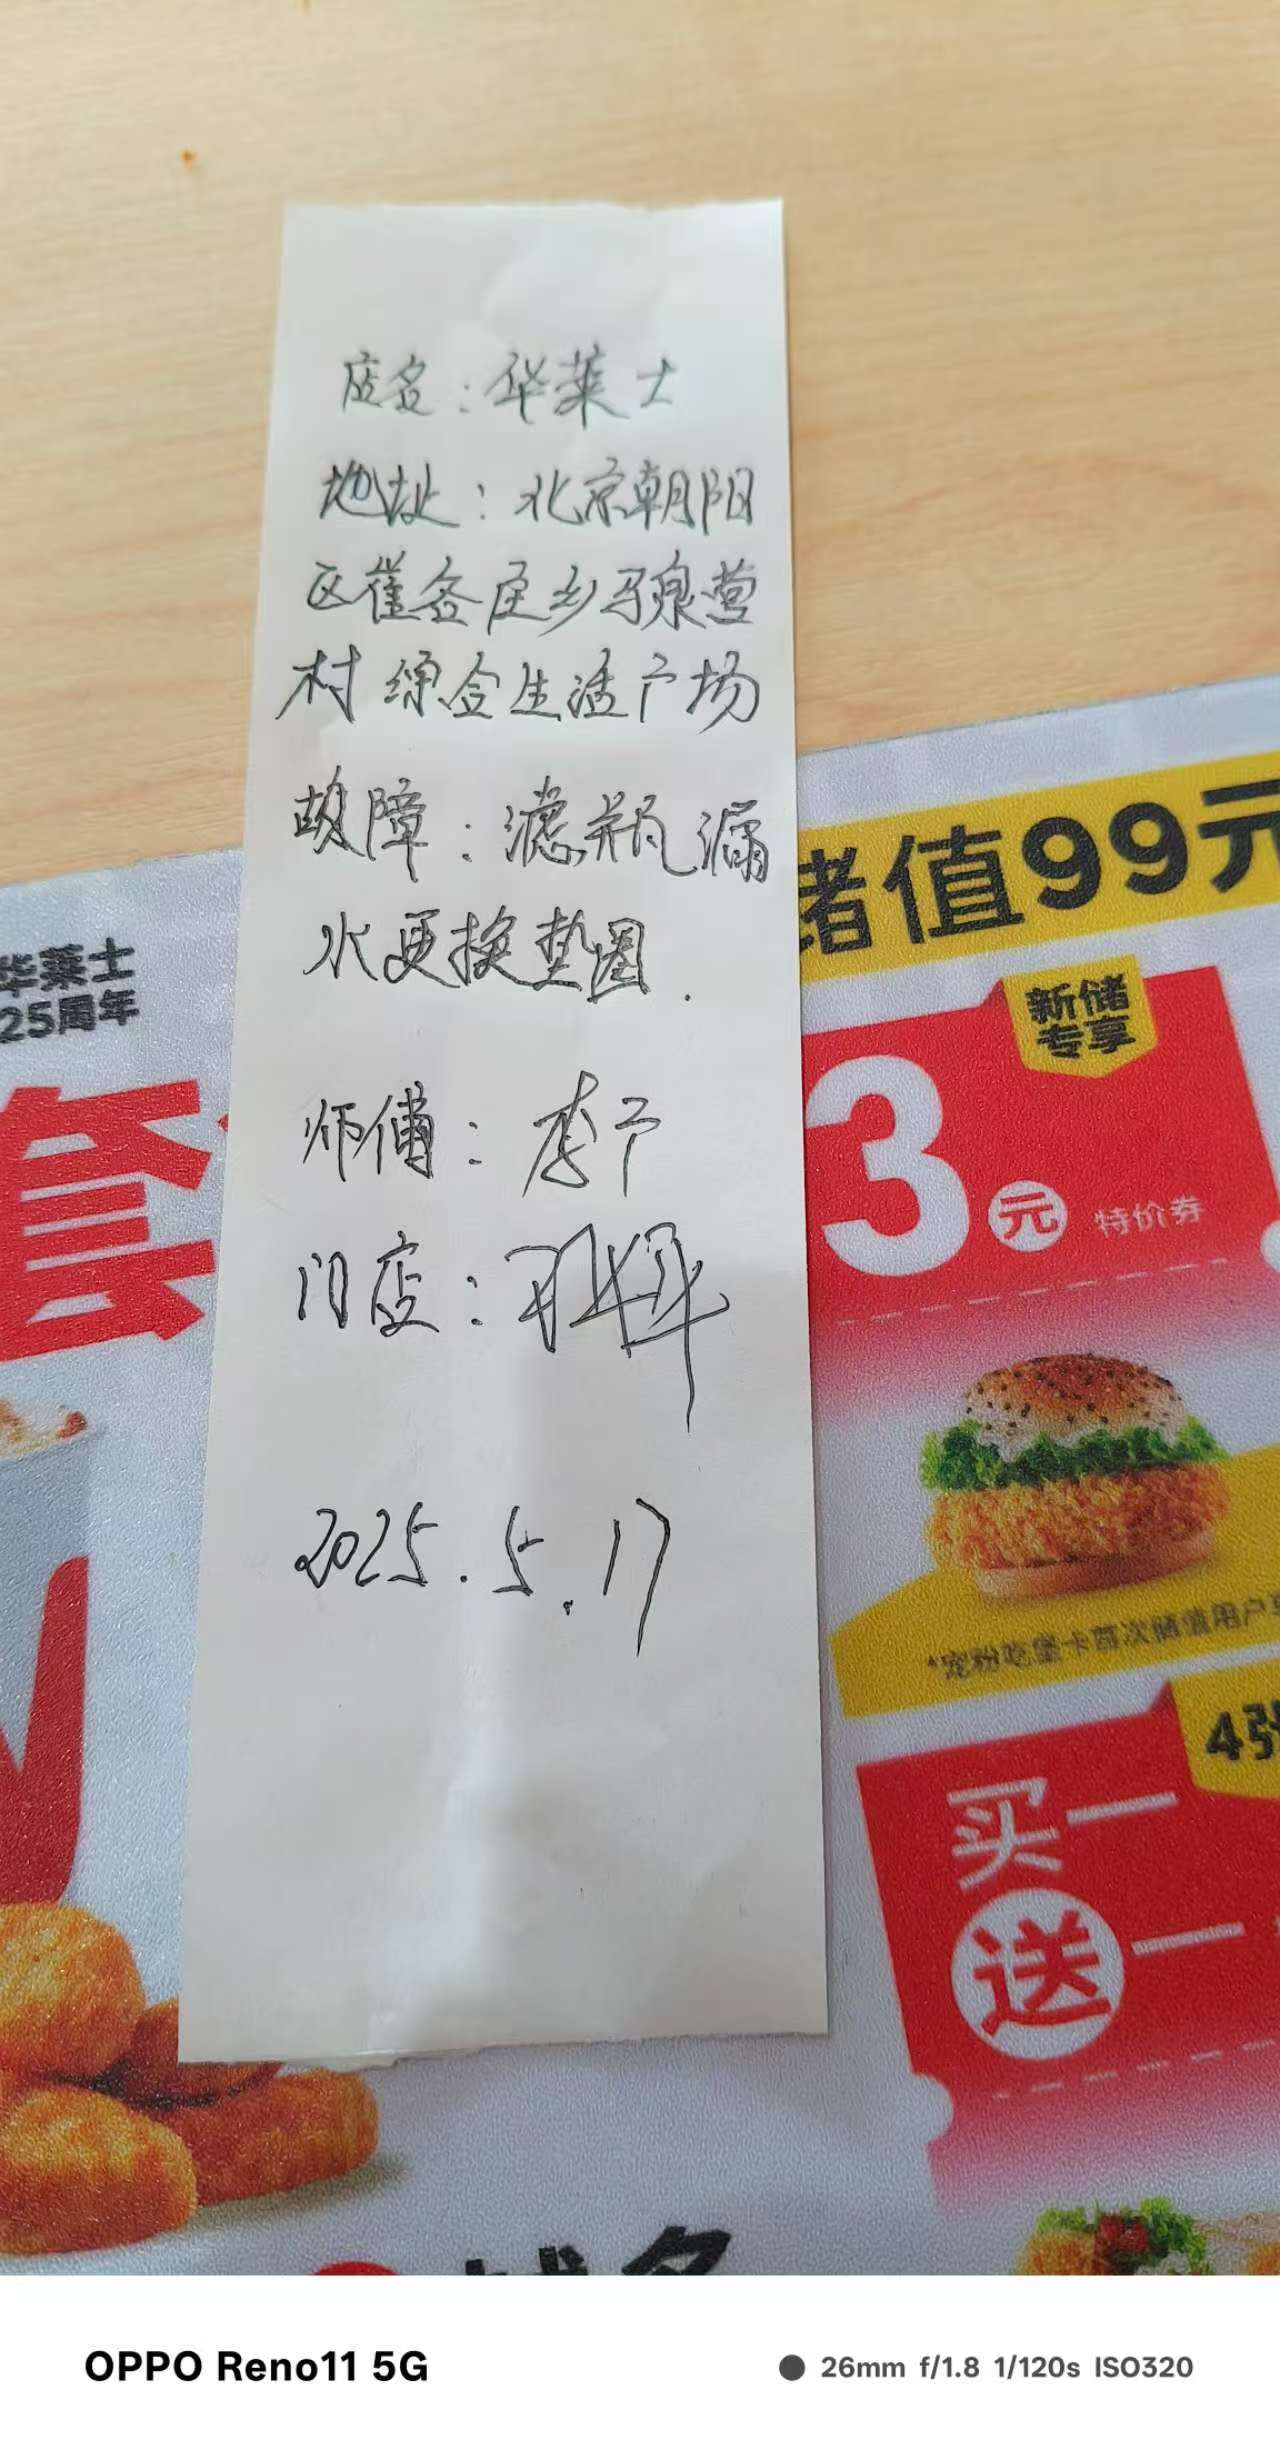 店名：华莱士
地址：北京朝阳
区崔各庄乡马泉营
村综合生活广场
故障：滤瓶漏
水更换垫圈.
师傅：李广
门店：
2025.5.17
华莱士
25周年
套
储值99元
新储
专享
3元 特价券
*宠粉吃堡卡首次储值用户
4张
买一
送一
OPPO Reno11 5G
26mm f/1.8 1/120s ISO320